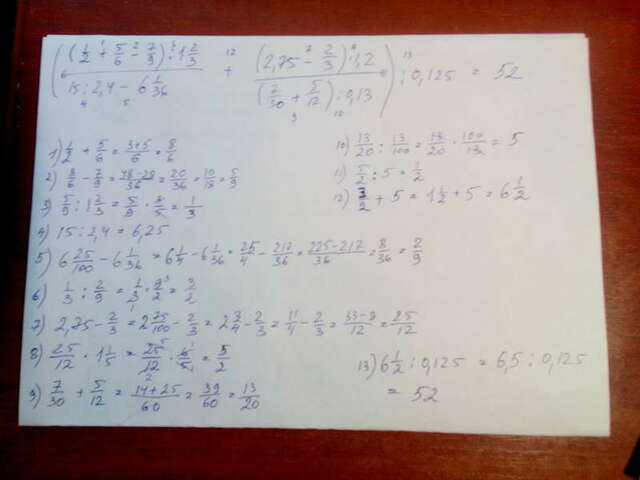 ( (1/2 + 5/6 - 7/9) : 1 2/3 / 15 : 2,4 - 6 1/36 + (2,75 - 2/3) · 1,2 / (7/30 + 5/12) : 0,13 ) : 0,125 = 52
1) 1/2 + 5/6 = 3+5/6 = 8/6
2) 8/6 - 7/9 = 48-28/36 = 20/36 = 10/18 = 5/9
3) 5/9 : 1 2/3 = 5/9 · 3/5 = 1/3
4) 15 : 2,4 = 6,25
5) 6 25/100 - 6 1/36 = 6 1/4 - 6 1/36 = 25/4 - 217/36 = 225-217/36 = 8/36 = 2/9
6) 1/3 : 2/9 = 1/3 · 9/2 = 3/2
7) 2,75 - 2/3 = 2 75/100 - 2/3 = 2 3/4 - 2/3 = 11/4 - 2/3 = 33-8/12 = 25/12
8) 25/12 · 1 1/5 = 25/12 · 6/5 = 5/2
9) 7/30 + 5/12 = 14+25/60 = 39/60 = 13/20
10) 13/20 : 13/100 = 13/20 · 100/13 = 5
11) 5/2 : 5 = 1/2
12) 3/2 + 5 = 1 1/2 + 5 = 6 1/2
13) 6 1/2 : 0,125 = 6,5 : 0,125
= 52